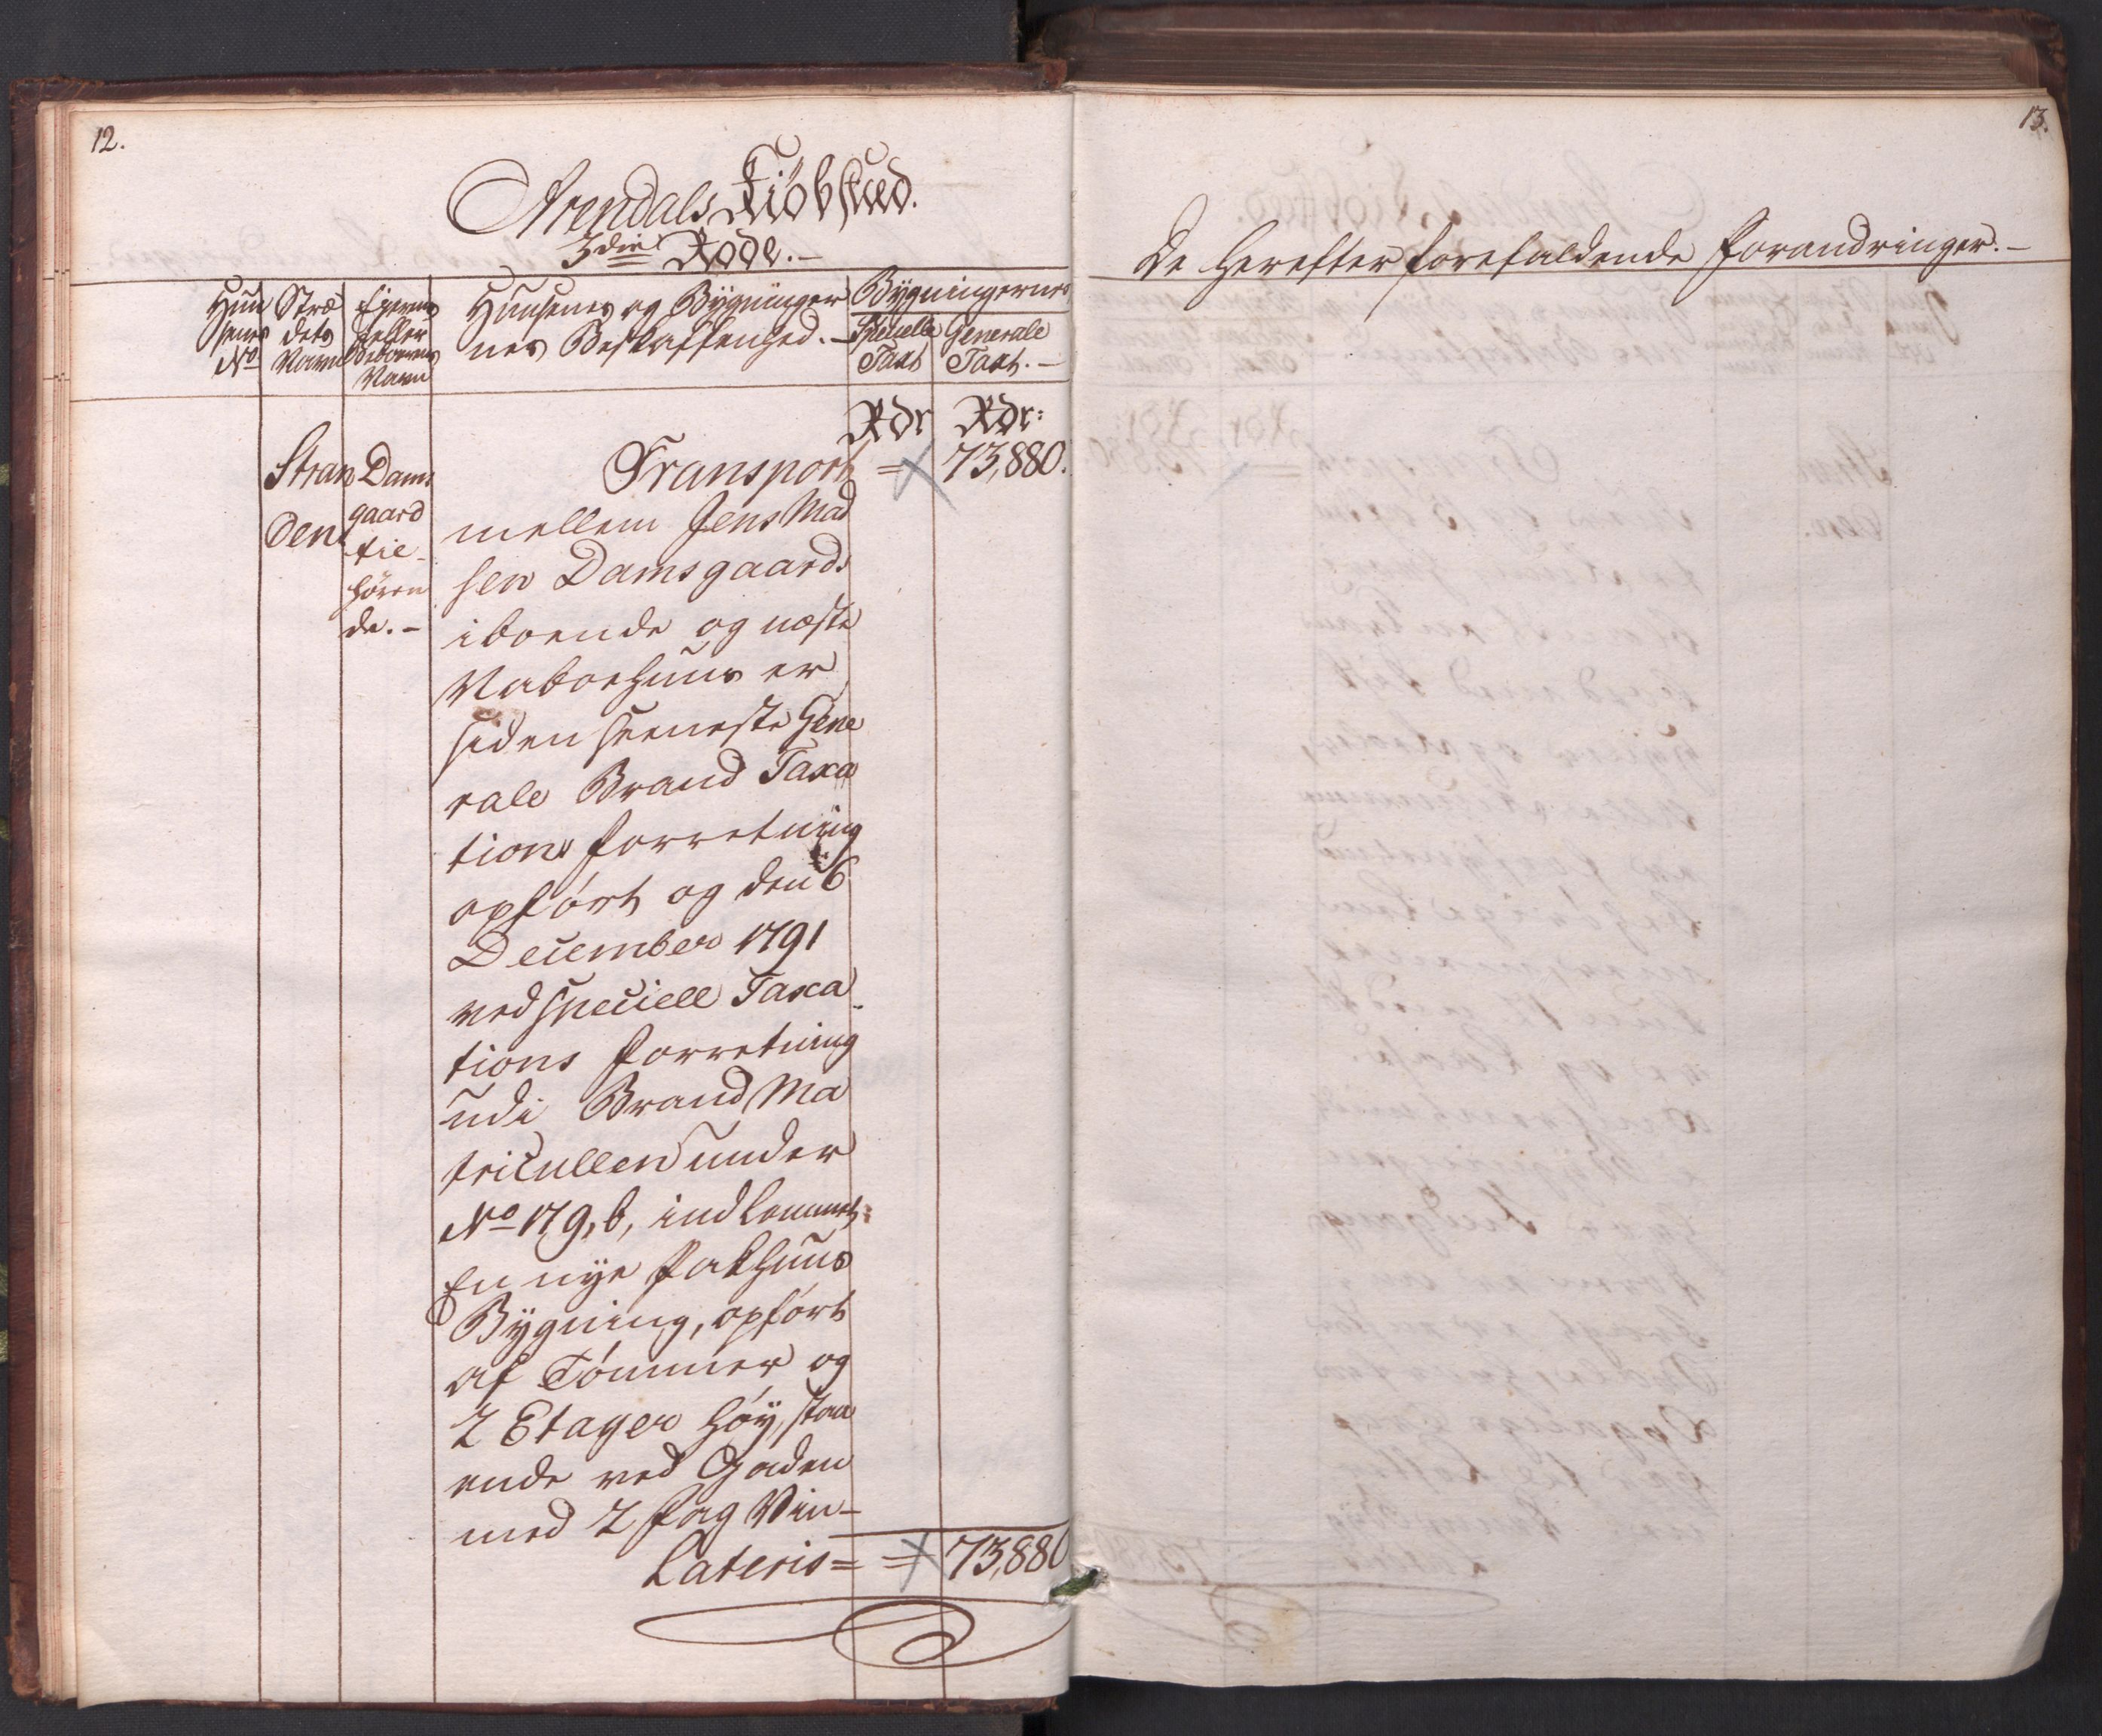 12.
Arendals Kiöbstæd.
3die Rode.-
Huu
senes
No
Stræ
dets
Navn
Ejerens
eller
Beboerens
Navn
Huusenes og Bygninger
nes Beskaffenhed.-
Bygningernes
Specielle
Taxt
Generale
Taxt.-
Rdr Rdr:
Transport = 73,880.
Stran
den
Dams
gaard
tie-
hören
de.-
mellem Jens Mad
sen Damsgaards
iboende og næste
Naboehuus er
siden seeneste Gene
rale Brand Taxa
tions Forretning
opført og den 6
December 1791
ved speciell Taxa-
tions Forretning
udi Brand Ma
tricullen under
No 179, b, indkommet:
En nye Pakhuus
Bygning, opført
af Tømmer og
2 Etager høy, staa
ende ved Gaden
med 2 Fag Vin-
Lateris = = 73,880
13.
De herefter forefaldende Forandringer.-